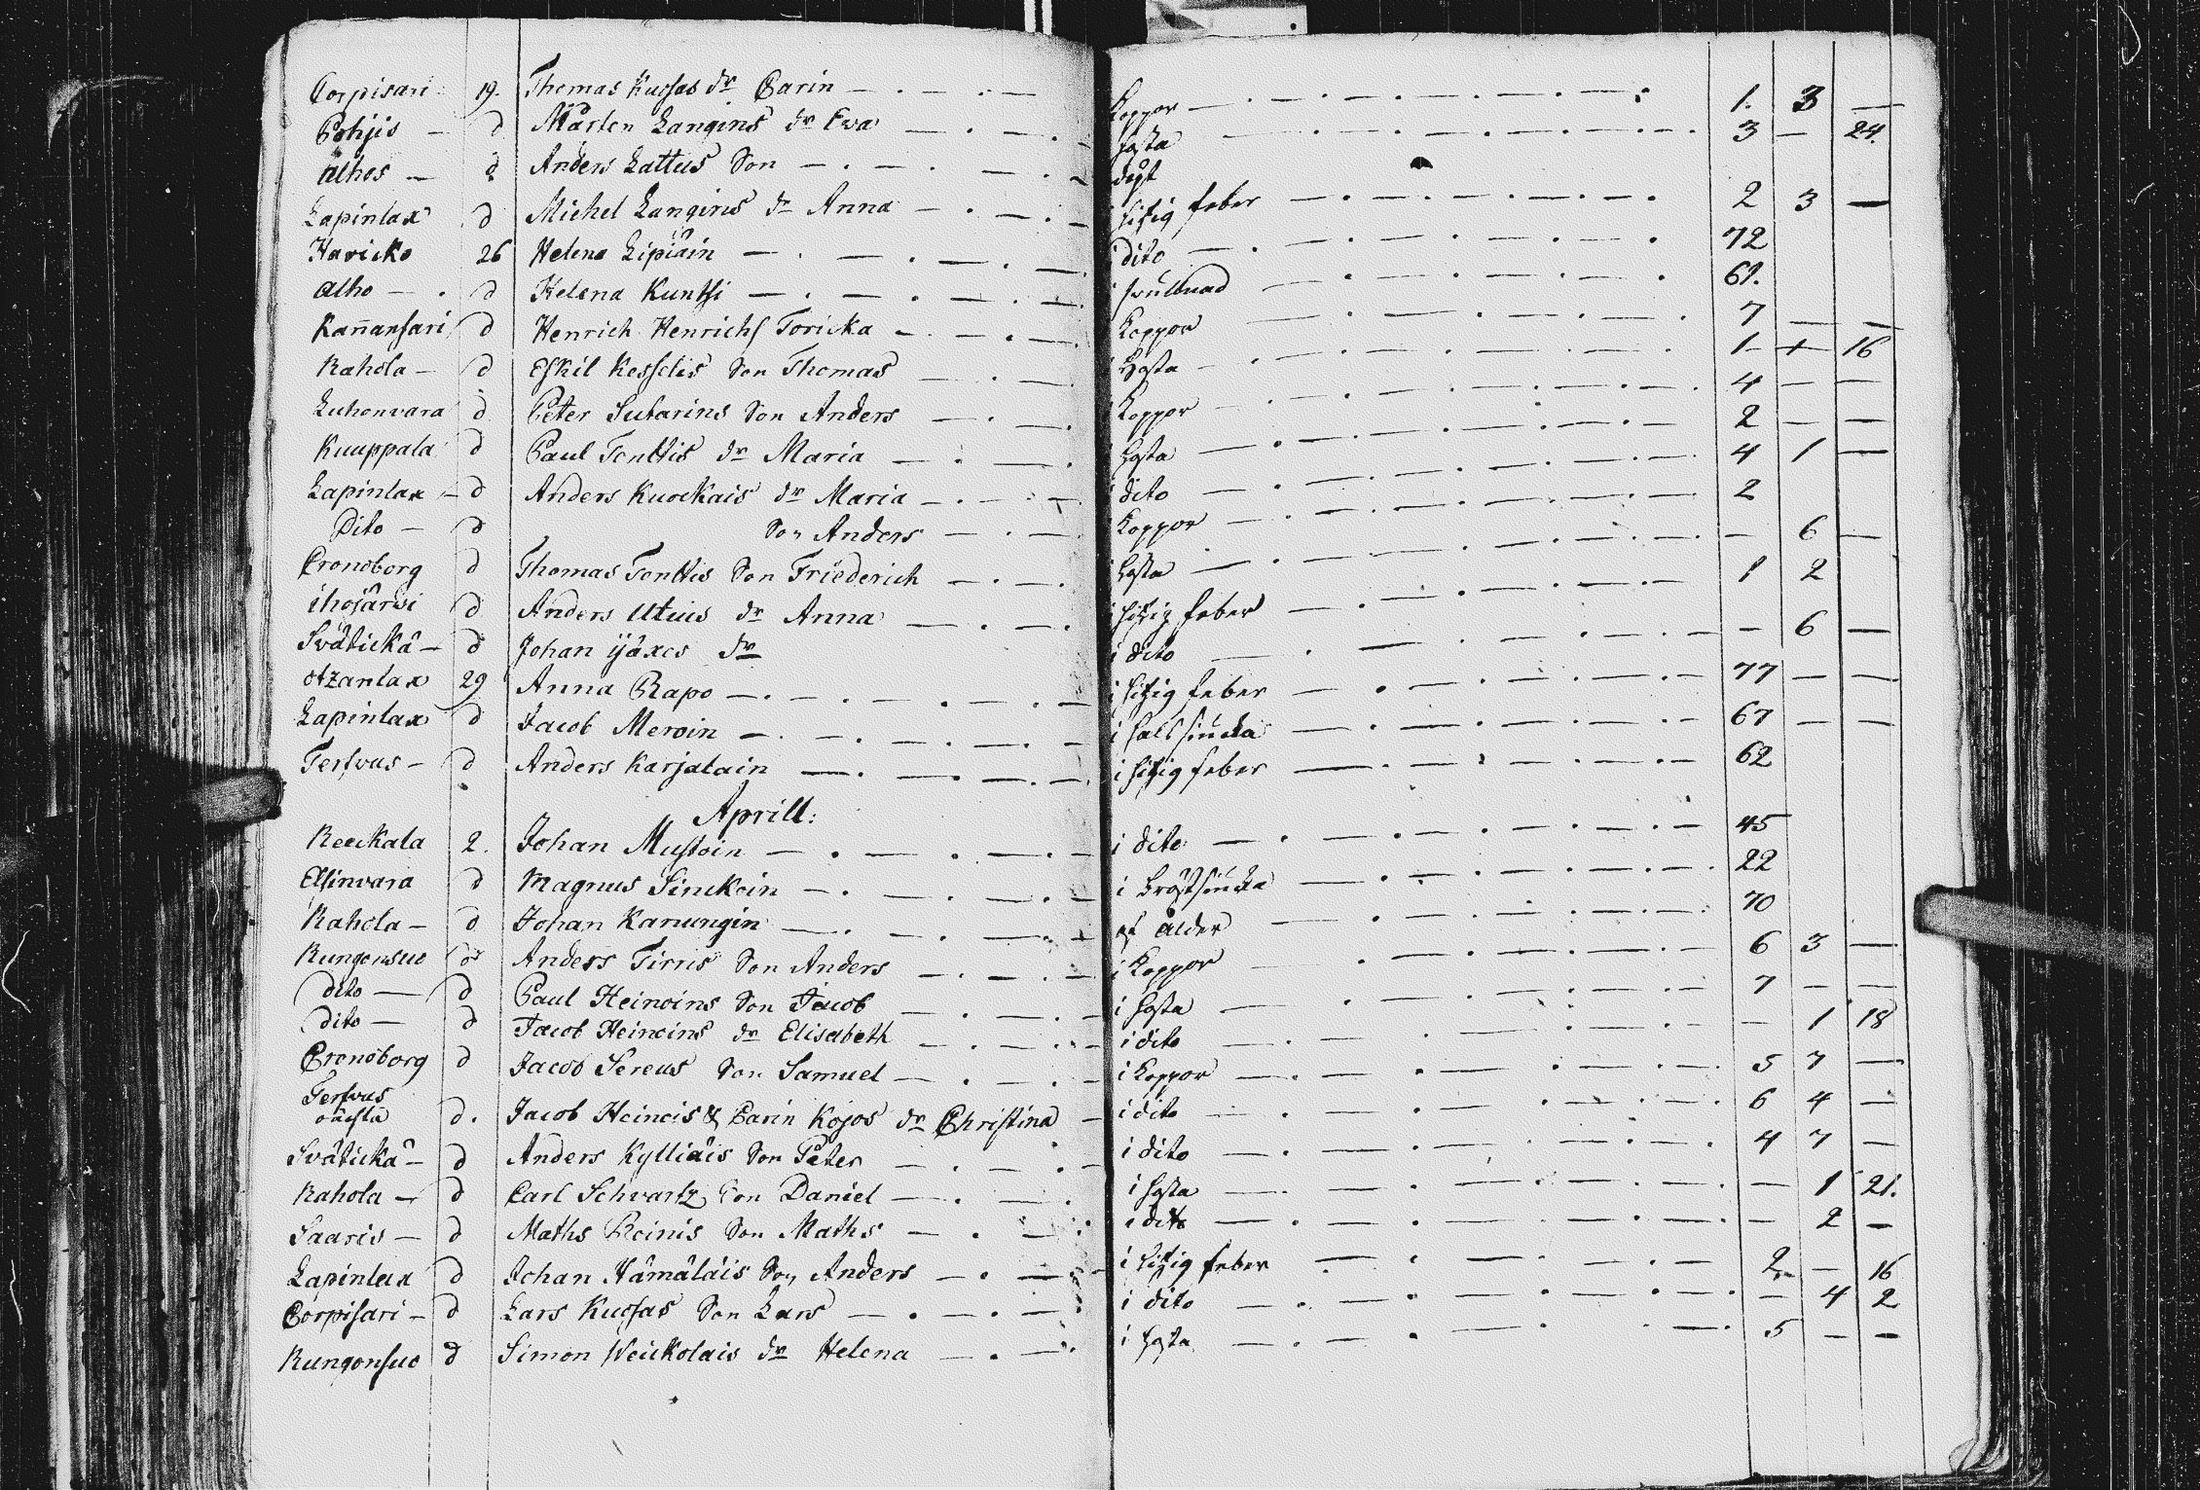 Corpisari 19. Thomas Kuosas dr Carin — i Koppor — 1. 3 —
Pohjis — d Mårten Langins dr Ewa — i hosta — 3 — 24.
alhos — d Anders Lattus Son — dept
Lapinlax d Michel Langins dr Anna — i hitzig feber — 2 3 —
Havicko 26 Helena Lipiäin — i dito — 72
alho — d Helena Kuntsi — i svullnad — 61.
Kañansari d Henrich Henrichs Toricka — i Koppor — 7 — —
Rahola — d Eskil Kesselis Son Thomas — i Hosta — 1 — + — 16
Luhonvara d Peter Sutarins Son Anders — i Koppor — 4 — —
Kuuppala d Paul Tenttis dr Maria — i Hosta — 2 — —
Lapinlax — d Anders Kuockais dr Maria — i dito — 4 1 —
Dito — d Son Anders — i Koppor — 2
Cronoborg d Thomas Tenttis Son Friederich — i Hosta — — 6 —
ihojärwi d Anders Utuis dr Anna — i hitzig feber — 1 2
Svätickä — d Johan ijäxes dr i dito — — 6 —
otzanlax 29 Anna Rapo — i hitzig feber — 77 — —
Lapinlax d Jacob Meroin — i halssiucka — 67 — —
Tervus — d Anders Karjalain — i hitzig feber — 62
Aprill:
Reeckala 2. Johan Mustoin — i dito — 45
Elsinvara d Magnus Sinckoin — i Bröstsiucka — 22
Rahola — d Johan Kanungin — af ålder — 70
Rungonsuo d Anders Tirris Son Anders — i Koppor — 6 3 —
dito — d Paul Heinoins Son Jacob — i hosta — 7 — —
dito — d Jacob Heinoins dr Elisabeth — i dito — — 1 18
Cronoborg d Jacob Sereus Son Samuel — i Koppor — 5 7 —
Tervus
d. Jacob Heinois & Carin Kojos dr Christina — i dito — 6 4 —
Svätickä — d Anders Kylliäis Son Peter — i dito — 4 7 —
Rahola — d Carl Schvartz Son Daniel — i hosta — — 1 21.
Saaris — d Maths Reinis Son Maths — i dito — — 2 —
Lapinlax d Johan Hämäläis Son Anders — i hitzig feber — 2 — 16
Corpisari — d Lars Kuosas Son Lars — i dito — — 4 2
Rungonsuo d Simon Weickolais dr Helena — i hosta — 5 — —